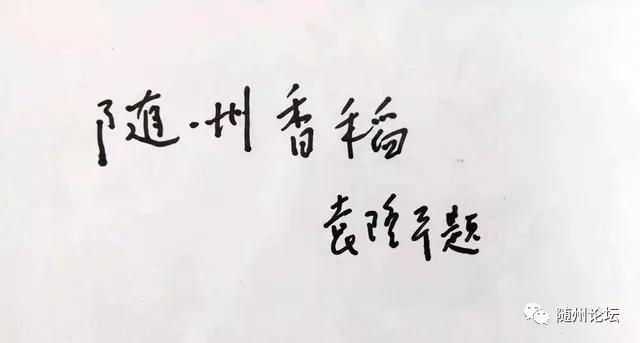 随州香稻
袁隆平题
随州论坛